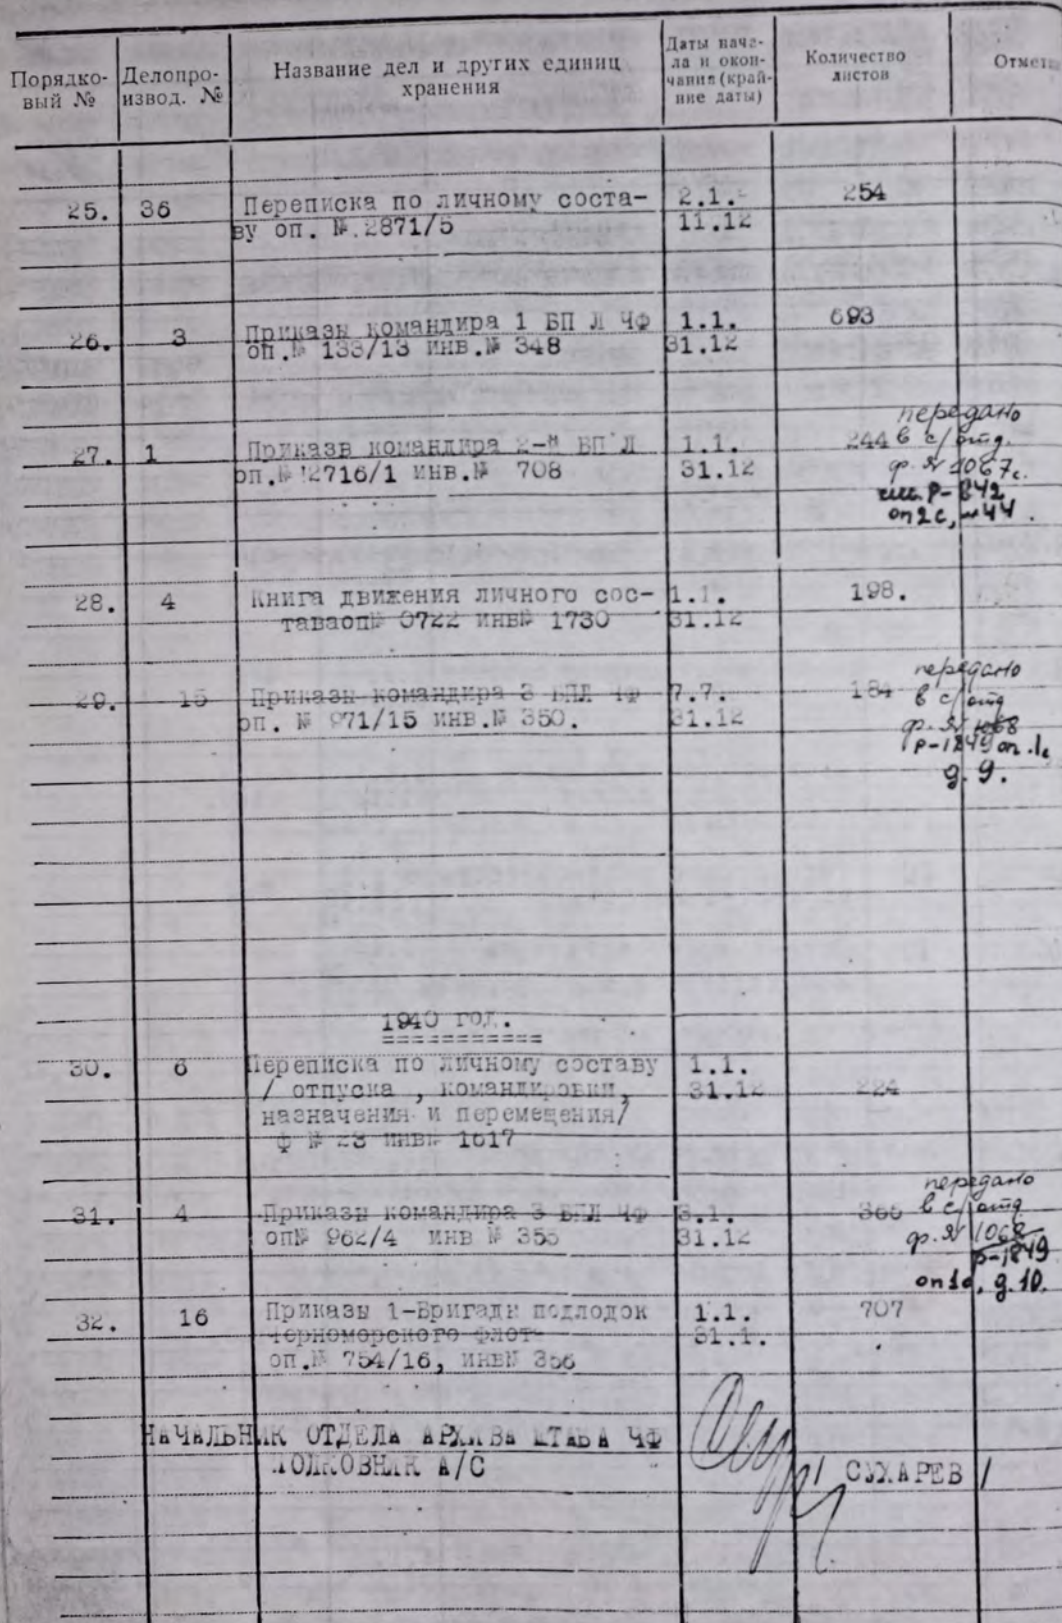 Порядко-
вый №
Делопро-
извод. №
Название дел и других единиц
хранения
Даты нача-
ла и окон-
чания (край-
ние даты)
Количество
листов
Отмет
25. 36 Переписка по личному соста- 2.1.- 254
ву оп. №.2871/5 11.12
26. 3 Приказы командира 1 БП Л ЧФ 1.1. 693
оп.№ 133/13 инв.№ 348 31.12
27. 1 Приказв командира 2-й БП Л 1.1. 244
оп.№ 2716/1 инв.№ 708 31.12
передано
в с/отд.
ф. № 1067с.
Р-842
оп2с, 44.
28. 4 Книга движения личного сос- 1.1. 198.
таваоп№ 0722 инв№ 1730 31.12
29. 15 Приказы командира 3 БПЛ ЧФ 7.7. 184
оп. № 971/15 инв.№ 350. 31.12
передано
в с/отд
ф. № 1068
Р-1849 оп.1с
д. 9.
1940 год.
===========
30. 6 Переписка по личному составу 1.1.
/ отпуска , командировки, 31.12 224
назначения и перемещения/
ф № 23 инв№ 1617
31. 4 Приказы командира 3 БПЛ ЧФ 3.1. 366
оп№ 962/4 инв № 355 31.12
передано
в с/отд
ф. № 1068
Р-1849
оп1с, д.10.
32. 16 Приказы 1-Бригады подлодок 1.1. 707
Черноморского флот 31.1.
оп.№ 754/16, инв№ 356
НАЧАЛЬНИК ОТДЕЛА АРХИВА ШТАБА ЧФ
ПОЛКОВНИК А/С / СУХАРЕВ /